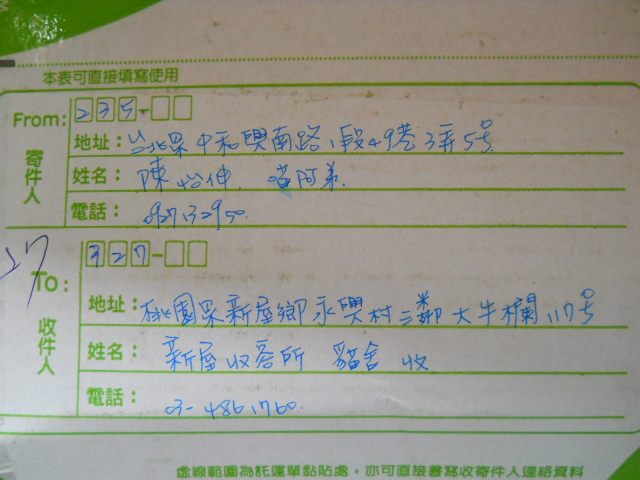 本表可直接填寫使用
From: 235-
寄件人
地址：台北県中和興南路1段49巷3弄5号
姓名：陳怡伸. 阿弟.
電話：
27
To: 327-
收件人
地址：桃園県新屋鄉永興村三鄰大牛欄117号
姓名：新屋收容所 貓舍 收
電話：03-4861760.
虛線範圍為託運單黏貼處，亦可直接書寫收寄件人連絡資料